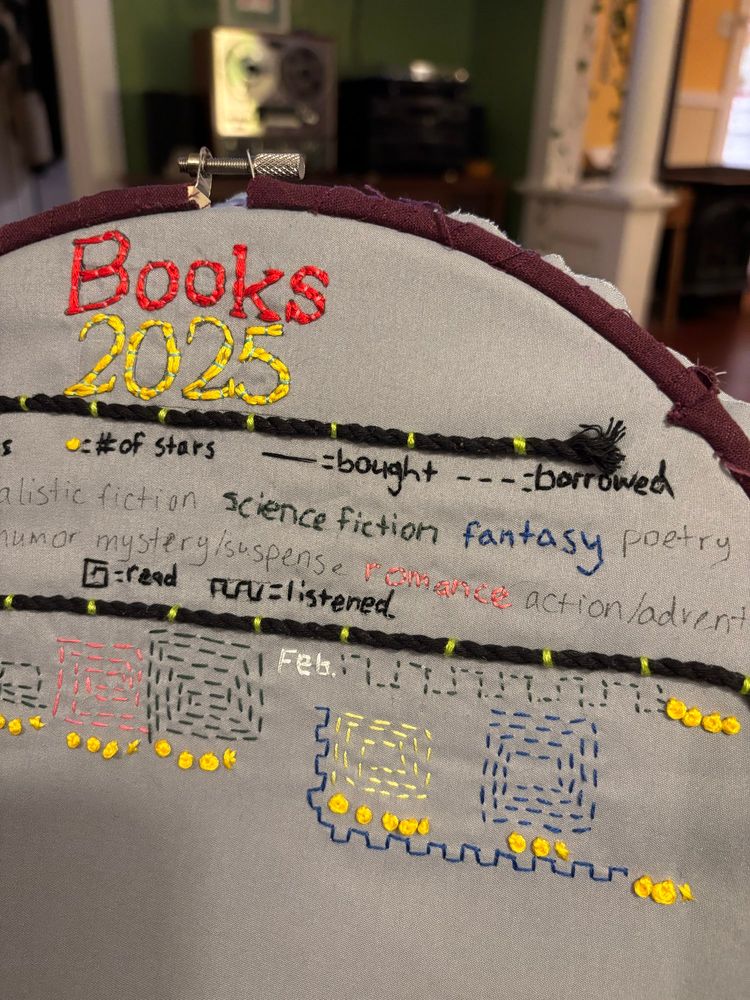 Books
2025
s =# of stars —— =bought ---=borrowed
alistic fiction science fiction fantasy poetry
humor mystery/suspense romance action/advent
=read =listened
Feb.